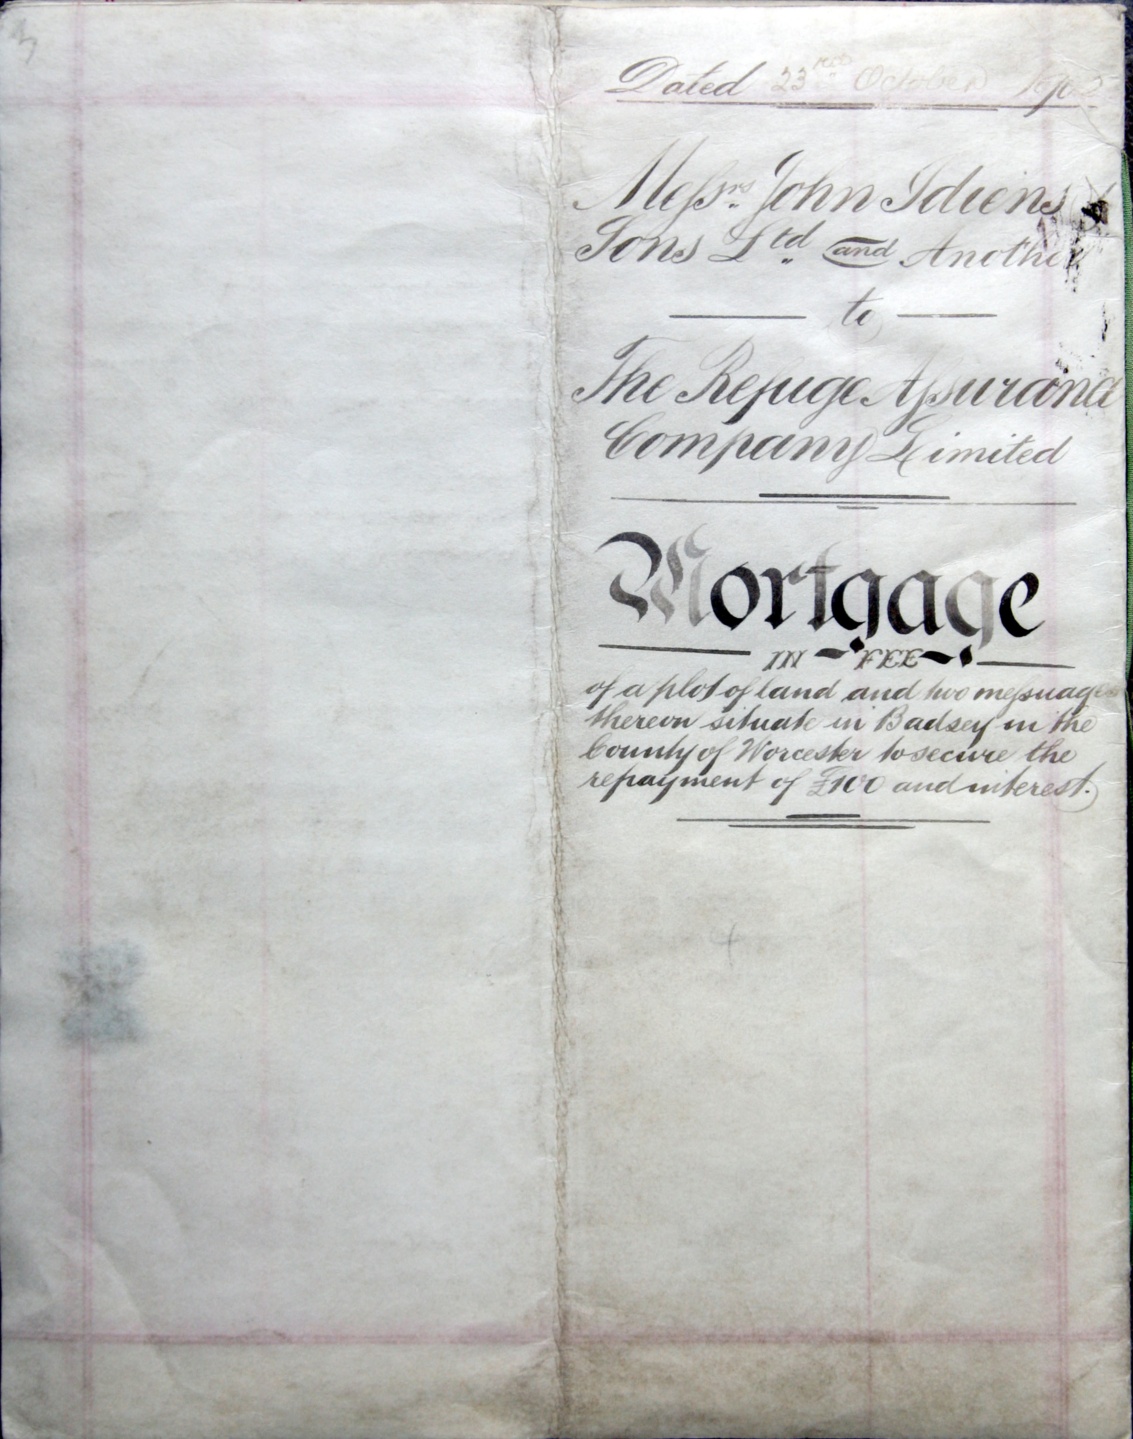 3
Dated 23rd October 1905
Messrs. John Idiens
Sons Ltd and Another
to
The Refuge Assurance
Company Limited
Mortgage
IN FEE
of a plot of land and two messuages
thereon situate in Badsey in the
County of Worcester to secure the
repayment of £100 and interest.